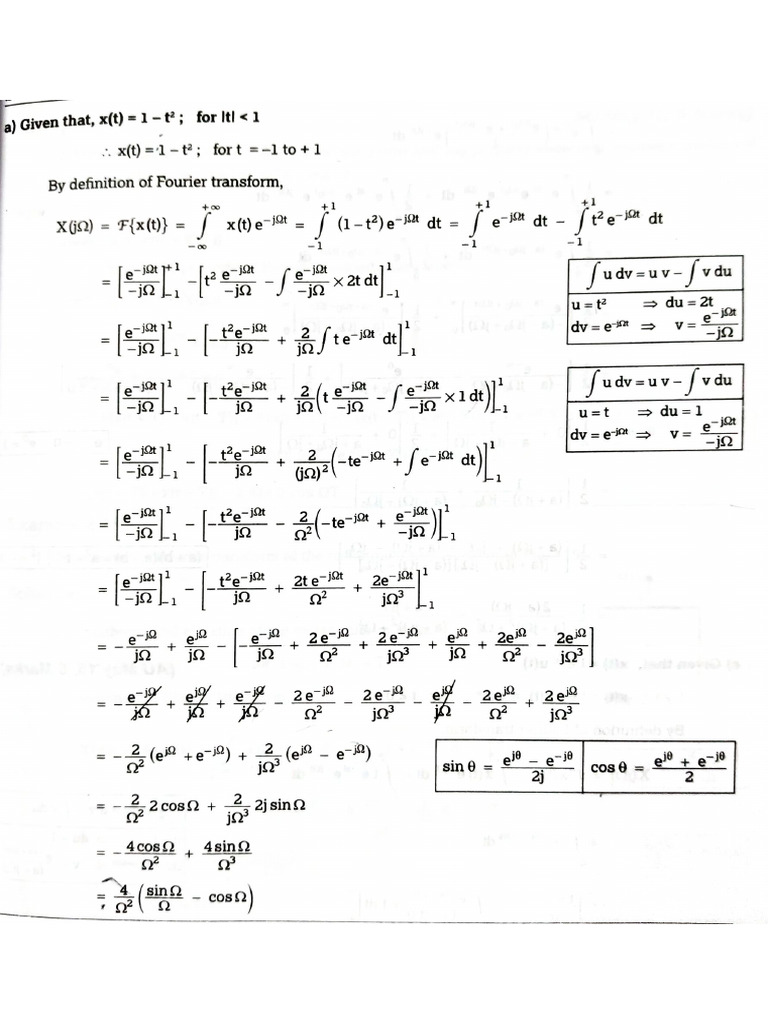 a) Given that, x(t) = 1 – t² ; for |t| < 1
∴ x(t) = 1 – t² ; for t = –1 to + 1
By definition of Fourier transform,
X(jΩ) = ℱ{x(t)} = ∫_{–∞}^{+∞} x(t) e^{–jΩt} = ∫_{–1}^{+1} (1 – t²) e^{–jΩt} dt = ∫_{–1}^{+1} e^{–jΩt} dt – ∫_{–1}^{+1} t² e^{–jΩt} dt
= [e^{–jΩt}/–jΩ]_{–1}^{+1} – [t² e^{–jΩt}/–jΩ – ∫ e^{–jΩt}/–jΩ × 2t dt]_{–1}^{1}
∫ u dv = u v – ∫ v du
u = t² ⇒ du = 2t
dv = e^{–jΩt} ⇒ v = e^{–jΩt}/–jΩ
= [e^{–jΩt}/–jΩ]_{–1}^{1} – [– t²e^{–jΩt}/jΩ + 2/jΩ ∫ t e^{–jΩt} dt]_{–1}^{1}
= [e^{–jΩt}/–jΩ]_{–1}^{1} – [– t²e^{–jΩt}/jΩ + 2/jΩ (t e^{–jΩt}/–jΩ – ∫ e^{–jΩt}/–jΩ × 1 dt)]_{–1}^{1}
∫ u dv = u v – ∫ v du
u = t ⇒ du = 1
dv = e^{–jΩt} ⇒ v = e^{–jΩt}/–jΩ
= [e^{–jΩt}/–jΩ]_{–1}^{1} – [– t²e^{–jΩt}/jΩ + 2/(jΩ)² (–te^{–jΩt} + ∫ e^{–jΩt} dt)]_{–1}^{1}
= [e^{–jΩt}/–jΩ]_{–1}^{1} – [– t²e^{–jΩt}/jΩ – 2/Ω² (–te^{–jΩt} + e^{–jΩt}/–jΩ)]_{–1}^{1}
= [e^{–jΩt}/–jΩ]_{–1}^{1} – [– t²e^{–jΩt}/jΩ + 2t e^{–jΩt}/Ω² + 2e^{–jΩt}/jΩ³]_{–1}^{1}
= – e^{–jΩ}/jΩ + e^{jΩ}/jΩ – [– e^{–jΩ}/jΩ + 2 e^{–jΩ}/Ω² + 2 e^{–jΩ}/jΩ³ + e^{jΩ}/jΩ + 2e^{jΩ}/Ω² – 2e^{jΩ}/jΩ³]
= – e^{–jΩ}/jΩ + e^{jΩ}/jΩ + e^{–jΩ}/jΩ – 2 e^{–jΩ}/Ω² – 2 e^{–jΩ}/jΩ³ – e^{jΩ}/jΩ – 2 e^{jΩ}/Ω² + 2 e^{jΩ}/jΩ³
= – 2/Ω² (e^{jΩ} + e^{–jΩ}) + 2/jΩ³ (e^{jΩ} – e^{–jΩ})
sin θ = e^{jθ} – e^{–jθ}/2j
cos θ = e^{jθ} + e^{–jθ}/2
= – 2/Ω² 2 cos Ω + 2/jΩ³ 2j sin Ω
= – 4 cos Ω/Ω² + 4 sin Ω/Ω³
= 4/Ω² (sin Ω/Ω – cos Ω)